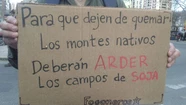 Para que dejen de quemar
Los montes nativos
Deberán ARDER
Los campos de SOJA